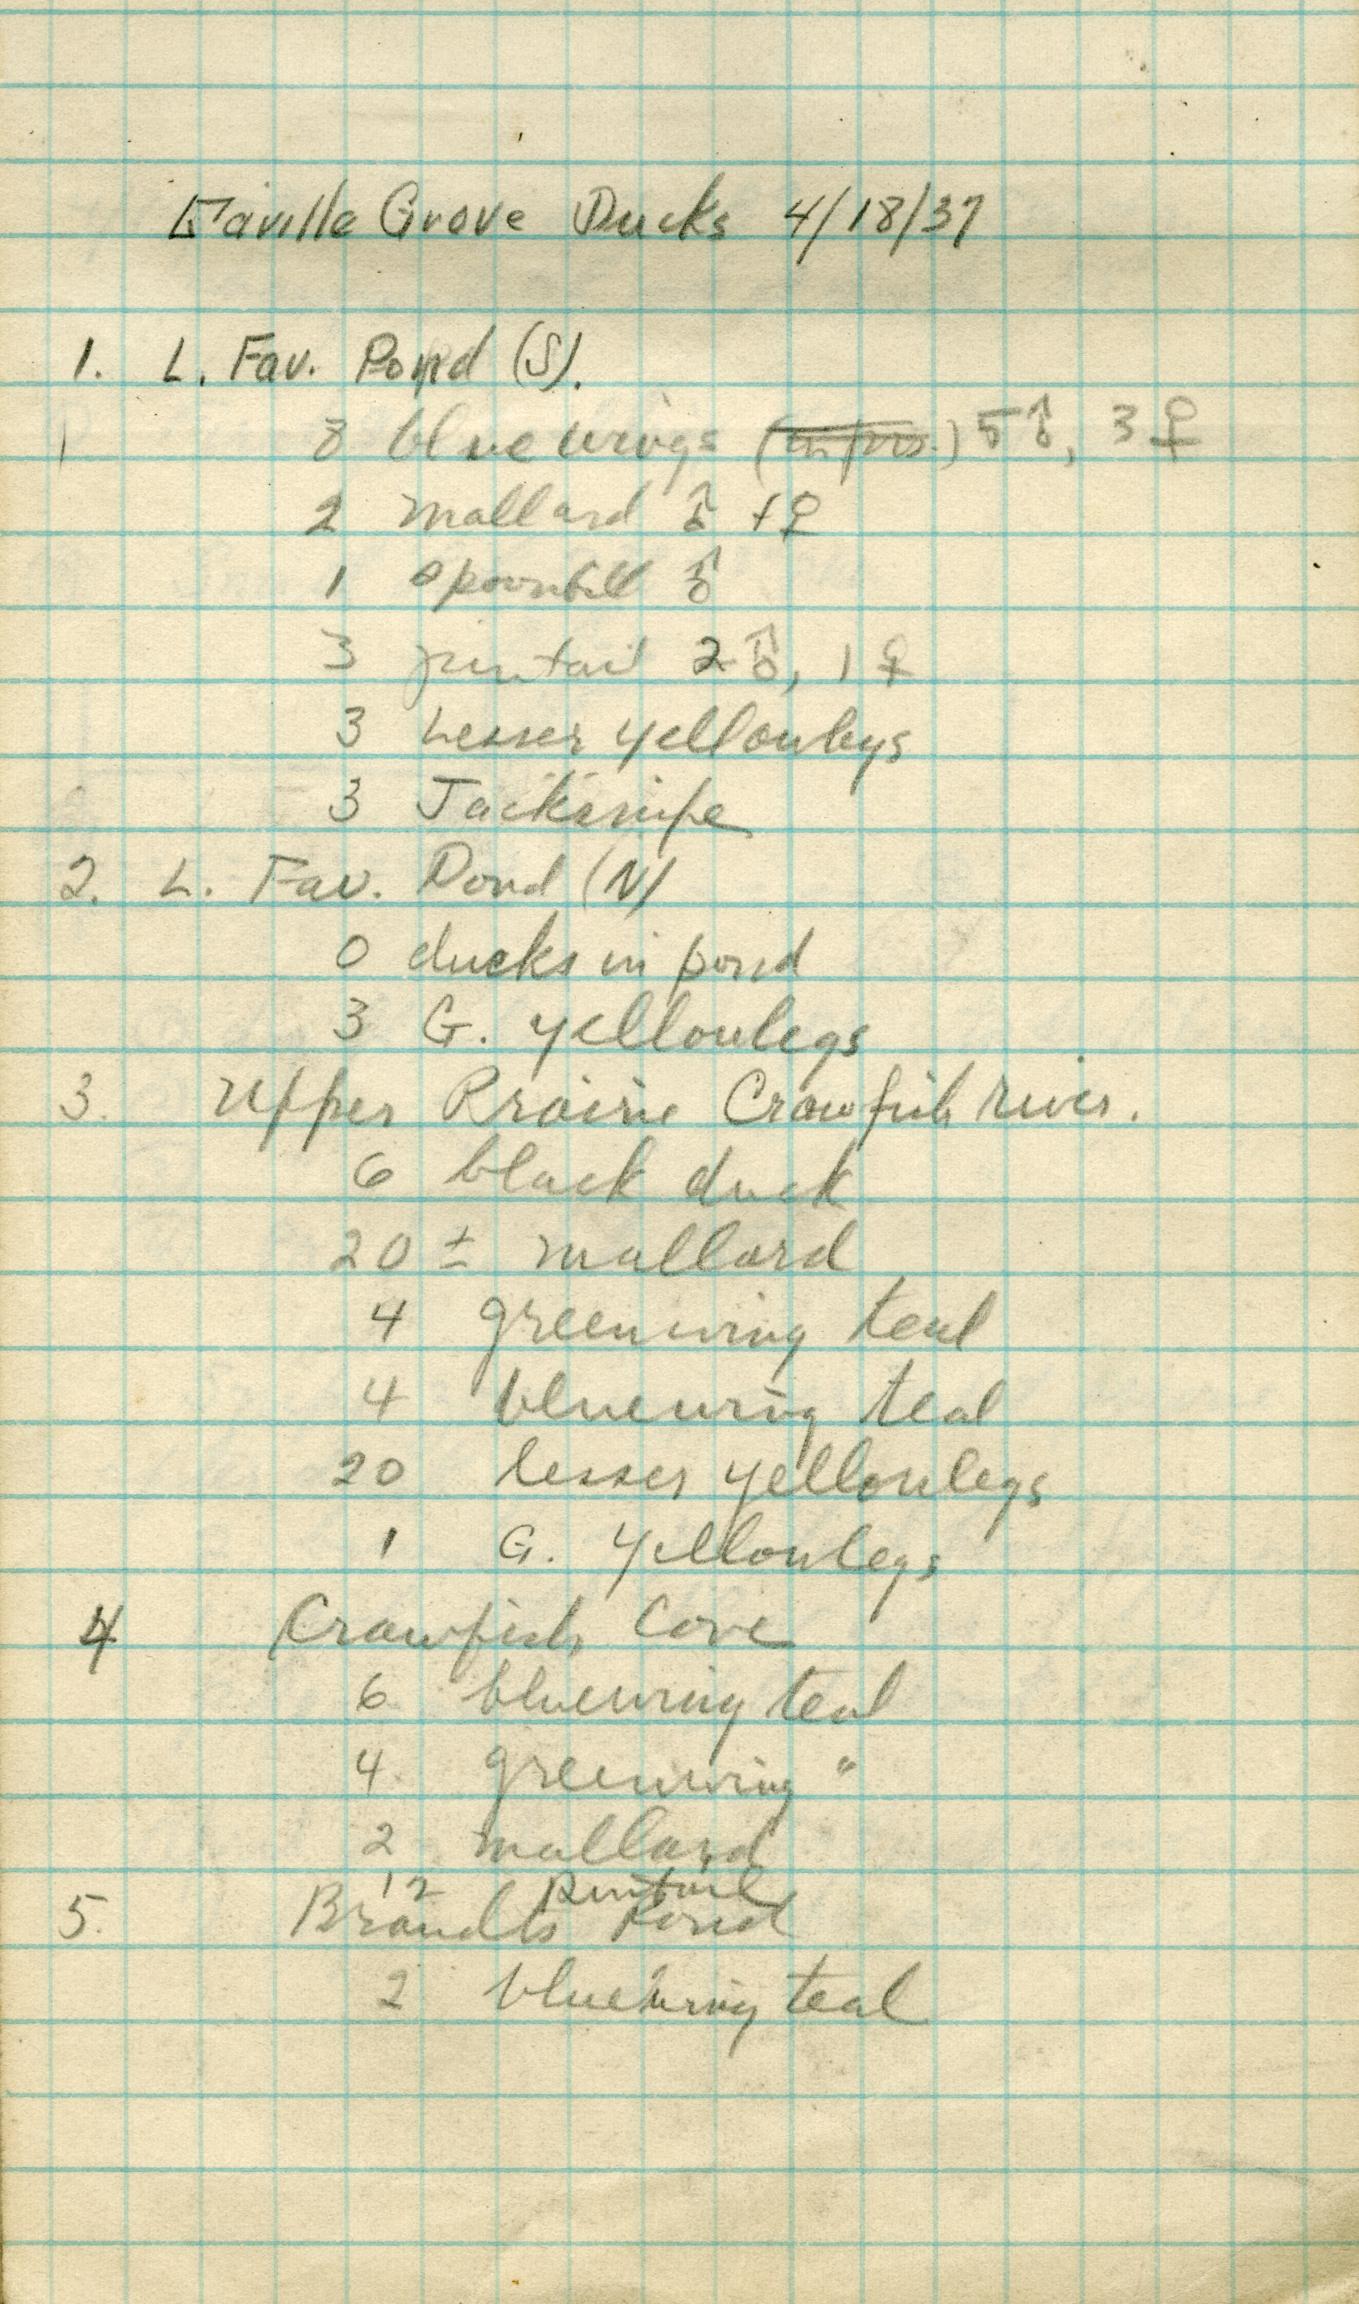 Faville Grove Ducks 4/18/37
1. L. Fav. Pond (S).
8 bluewings (in prs.) 5♂, 3♀
2 mallard ♂ + ♀
1 spoonbill ♂
3 pintail 2♂, 1♀
3 Lesser yellowlegs
3 Jacksnipe
2. L. Fav. Pond (N)
0 ducks in pond
3 G. yellowlegs
3. Upper Prairie Crawfish river.
6 black duck
20 ± mallard
4 greenwing teal
4 bluewing teal
20 lesser yellowlegs
1 G. Yellowlegs
4 Crawfish Cove
6 bluewing teal
4 greenwing "
2 mallard
12 pintail
5. Brandts Pond
2 bluewing teal